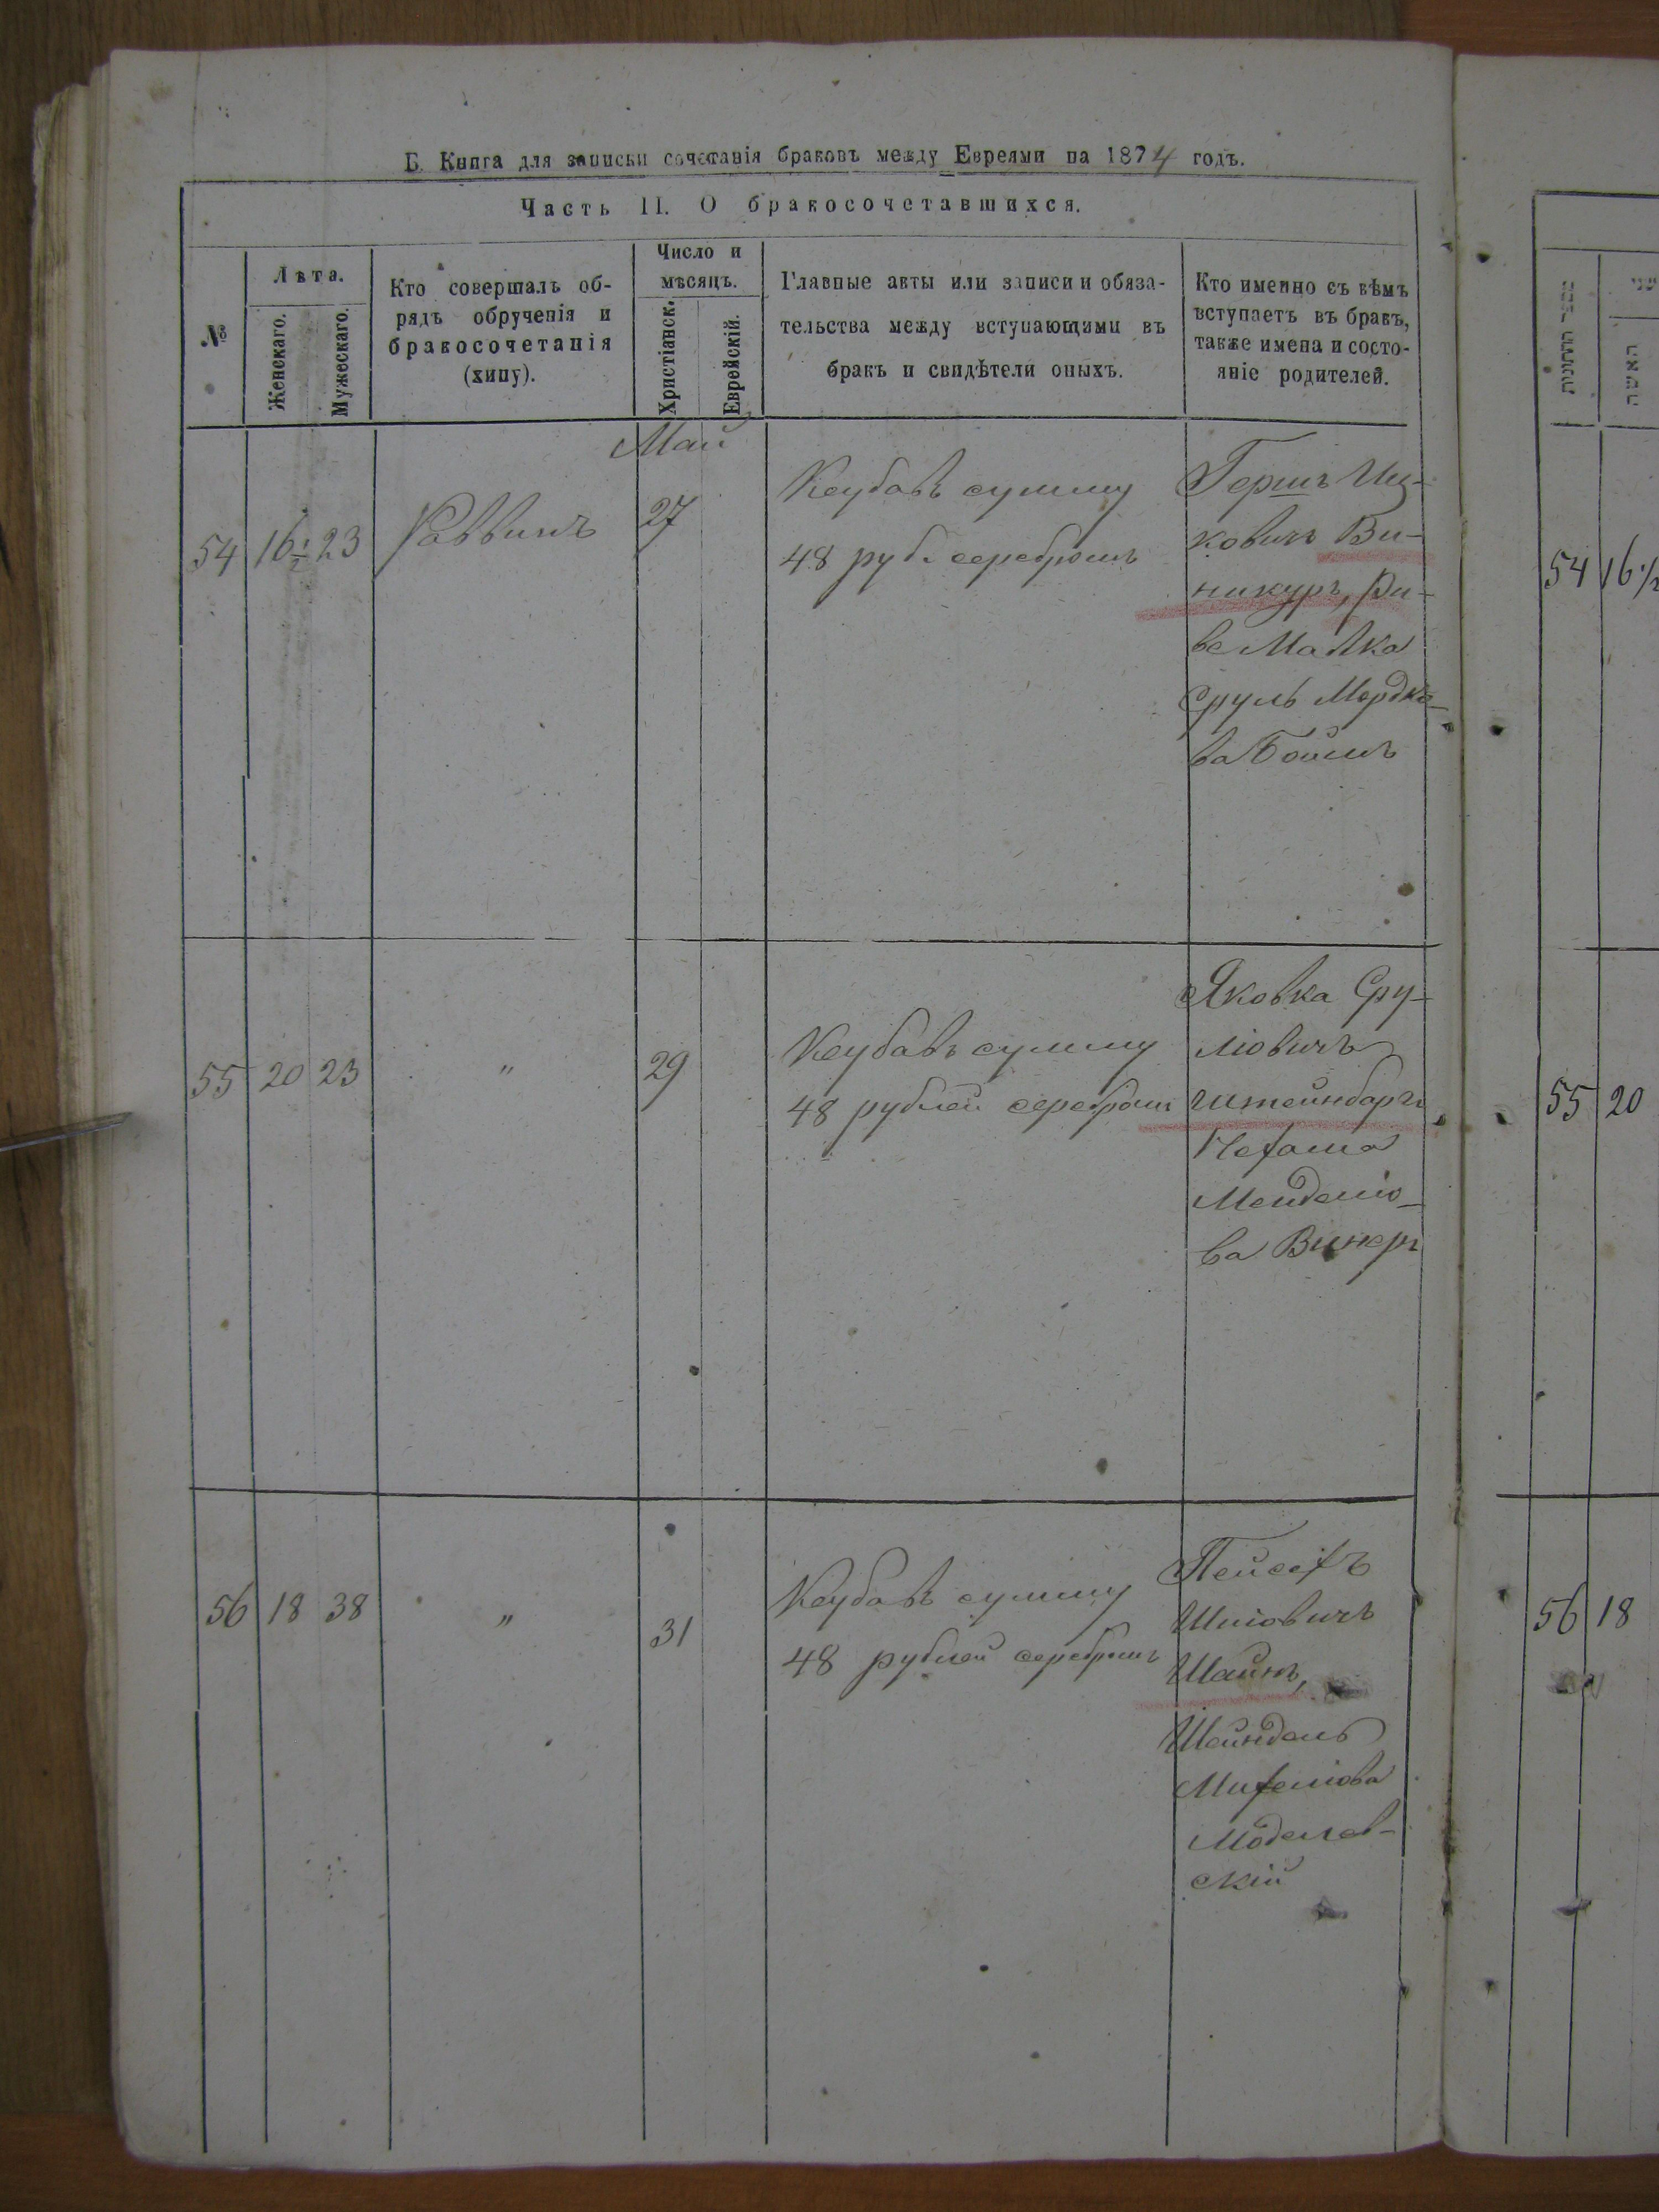 Б. Книга для записки сочетанія браковъ между Евреями на 1874 годъ.
Часть II. О бракосочетавшихся.
№
Лѣта.
Женскаго.
Мужескаго.
Кто совершалъ об-
рядъ обрученія и
бракосочетанія
(хипу).
Число и
мѣсяцъ.
Христіанск.
Еврейскій.
Главные акты или записи и обяза-
тельства между вступающими въ
бракъ и свидѣтели оныхъ.
Кто именно съ кѣмъ
вступаетъ въ бракъ,
также имена и состо-
яніе родителей.
Май
54 16½ 23 Раввинъ 27
Кеубавъ сумму
48 руб. серебромъ
Гершъ Иц-
ковичъ Ви-
никуръ, Ри-
ве Малка
Сруль Мордко-
ва Боимъ
55 20 23 " 29
Кеубавъ сумму
48 рублей серебромъ
Яковка Сру-
ліовичъ
Штейнбаргъ
Нехама
Менделіо-
ва Винеръ
56 18 38 " 31
Кеубавъ сумму
48 рублей серебромъ
Пейсехъ
Шліовичъ
Шаинъ,
Шейндель
Михеліова
Моделев-
скій
מספר החתונות
האשה
54 16½
55 20
56 18